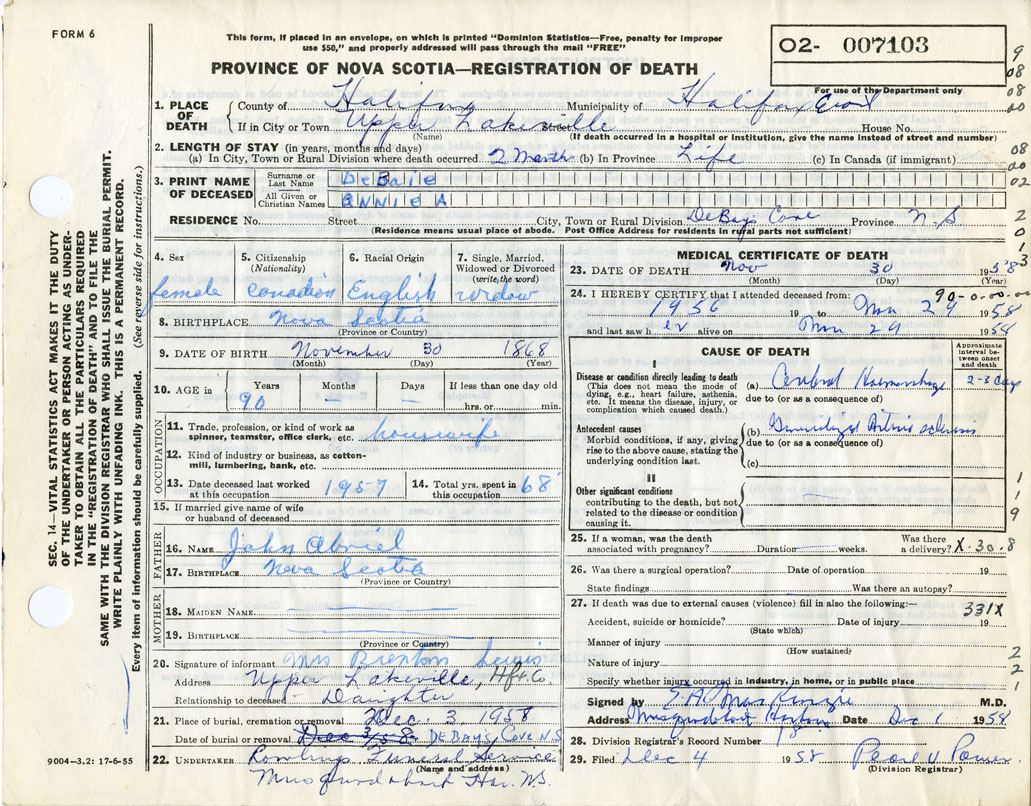 FORM 6
This form, if placed in an envelope, on which is printed "Dominion Statistics—Free, penalty for improper
use $50," and properly addressed will pass through the mail "FREE"
PROVINCE OF NOVA SCOTIA—REGISTRATION OF DEATH
02- 007103
For use of the Department only
9
08
08
00
08
00
02
2
0
1
3
1. PLACE OF DEATH County of Halifax Municipality of Halifax
If in City or Town Upper Lakeville Street House No.
(Name) (If death occurred in a hospital or institution, give the name instead of street and number)
2. LENGTH OF STAY (in years, months and days)
(a) In City, Town or Rural Division where death occurred 2 Months (b) In Province Life (c) In Canada (if immigrant)
3. PRINT NAME OF DECEASED
Surname or Last Name DeBaie
All Given or Christian Names ANNIE A
RESIDENCE No. Street City, Town or Rural Division DeBay's Cove Province N.S
(Residence means usual place of abode. Post Office Address for residents in rural parts not sufficient)
4. Sex
female
5. Citizenship
(Nationality)
Canadian
6. Racial Origin
English
7. Single, Married, Widowed or Divorced
(write the word)
widow
8. BIRTHPLACE Nova Scotia
(Province or Country)
9. DATE OF BIRTH November 30 1868
(Month) (Day) (Year)
10. AGE in Years Months Days If less than one day old
90 — — hrs. or min.
OCCUPATION
11. Trade, profession, or kind of work as
spinner, teamster, office clerk, etc. housewife
12. Kind of industry or business, as cotton-
mill, lumbering, bank, etc.
13. Date deceased last worked
at this occupation 1957
14. Total yrs. spent in
this occupation 68
15. If married give name of wife
or husband of deceased
FATHER
16. NAME John Abriel
17. BIRTHPLACE Nova Scotia
(Province or Country)
MOTHER
18. MAIDEN NAME
19. BIRTHPLACE
(Province or Country)
20. Signature of informant Mrs Brenton Lewis
Address Upper Lakeville, Hfx Co.
Relationship to deceased Daughter
21. Place of burial, cremation or removal Dec. 3, 1958
Date of burial or removal Dec 3/58 DEBAYS COVE N.S
22. UNDERTAKER Rowlings Funeral Service
(Name and address)
Musquodoboit Har. N.S.
9004—3.2: 17-6-55
MEDICAL CERTIFICATE OF DEATH
23. DATE OF DEATH Nov 30 1958
(Month) (Day) (Year)
90-0-00-00
24. I HEREBY CERTIFY that I attended deceased from:
1956 19 to Nov 29 1958
and last saw her alive on Nov 29 1958
CAUSE OF DEATH
Approximate interval between onset and death
I
Disease or condition directly leading to death
(This does not mean the mode of
dying, e.g., heart failure, asthenia,
etc. It means the disease, injury, or
complication which caused death.)
(a) Cerebral Haemorrhage 2-3 days
due to (or as a consequence of)
Antecedent causes
Morbid conditions, if any, giving
rise to the above cause, stating the
underlying condition last.
(b) Generalized Arteriosclerosis
due to (or as a consequence of)
(c)
II
Other significant conditions
contributing to the death, but not
related to the disease or condition
causing it.
1
1
9
25. If a woman, was the death
associated with pregnancy? Duration weeks. Was there
a delivery? X-30-8
26. Was there a surgical operation? Date of operation 19
State findings Was there an autopsy?
27. If death was due to external causes (violence) fill in also the following:— 331X
Accident, suicide or homicide? Date of injury 19
(State which)
Manner of injury
(How sustained)
Nature of injury
2
2
1
Specify whether injury occurred in industry, in home, or in public place
Signed by E.A. MacKenzie M.D.
Address Musquodoboit Harbour Date Dec 1 1958
28. Division Registrar's Record Number 18
29. Filed Dec 4 1958 Pearl V Power
(Division Registrar)
SEC. 14—VITAL STATISTICS ACT MAKES IT THE DUTY
OF THE UNDERTAKER OR PERSON ACTING AS UNDER-
TAKER TO OBTAIN ALL THE PARTICULARS REQUIRED
IN THE "REGISTRATION OF DEATH" AND TO FILE THE
SAME WITH THE DIVISION REGISTRAR WHO SHALL ISSUE THE BURIAL PERMIT.
WRITE PLAINLY WITH UNFADING INK. THIS IS A PERMANENT RECORD.
Every item of information should be carefully supplied. (See reverse side for instructions.)